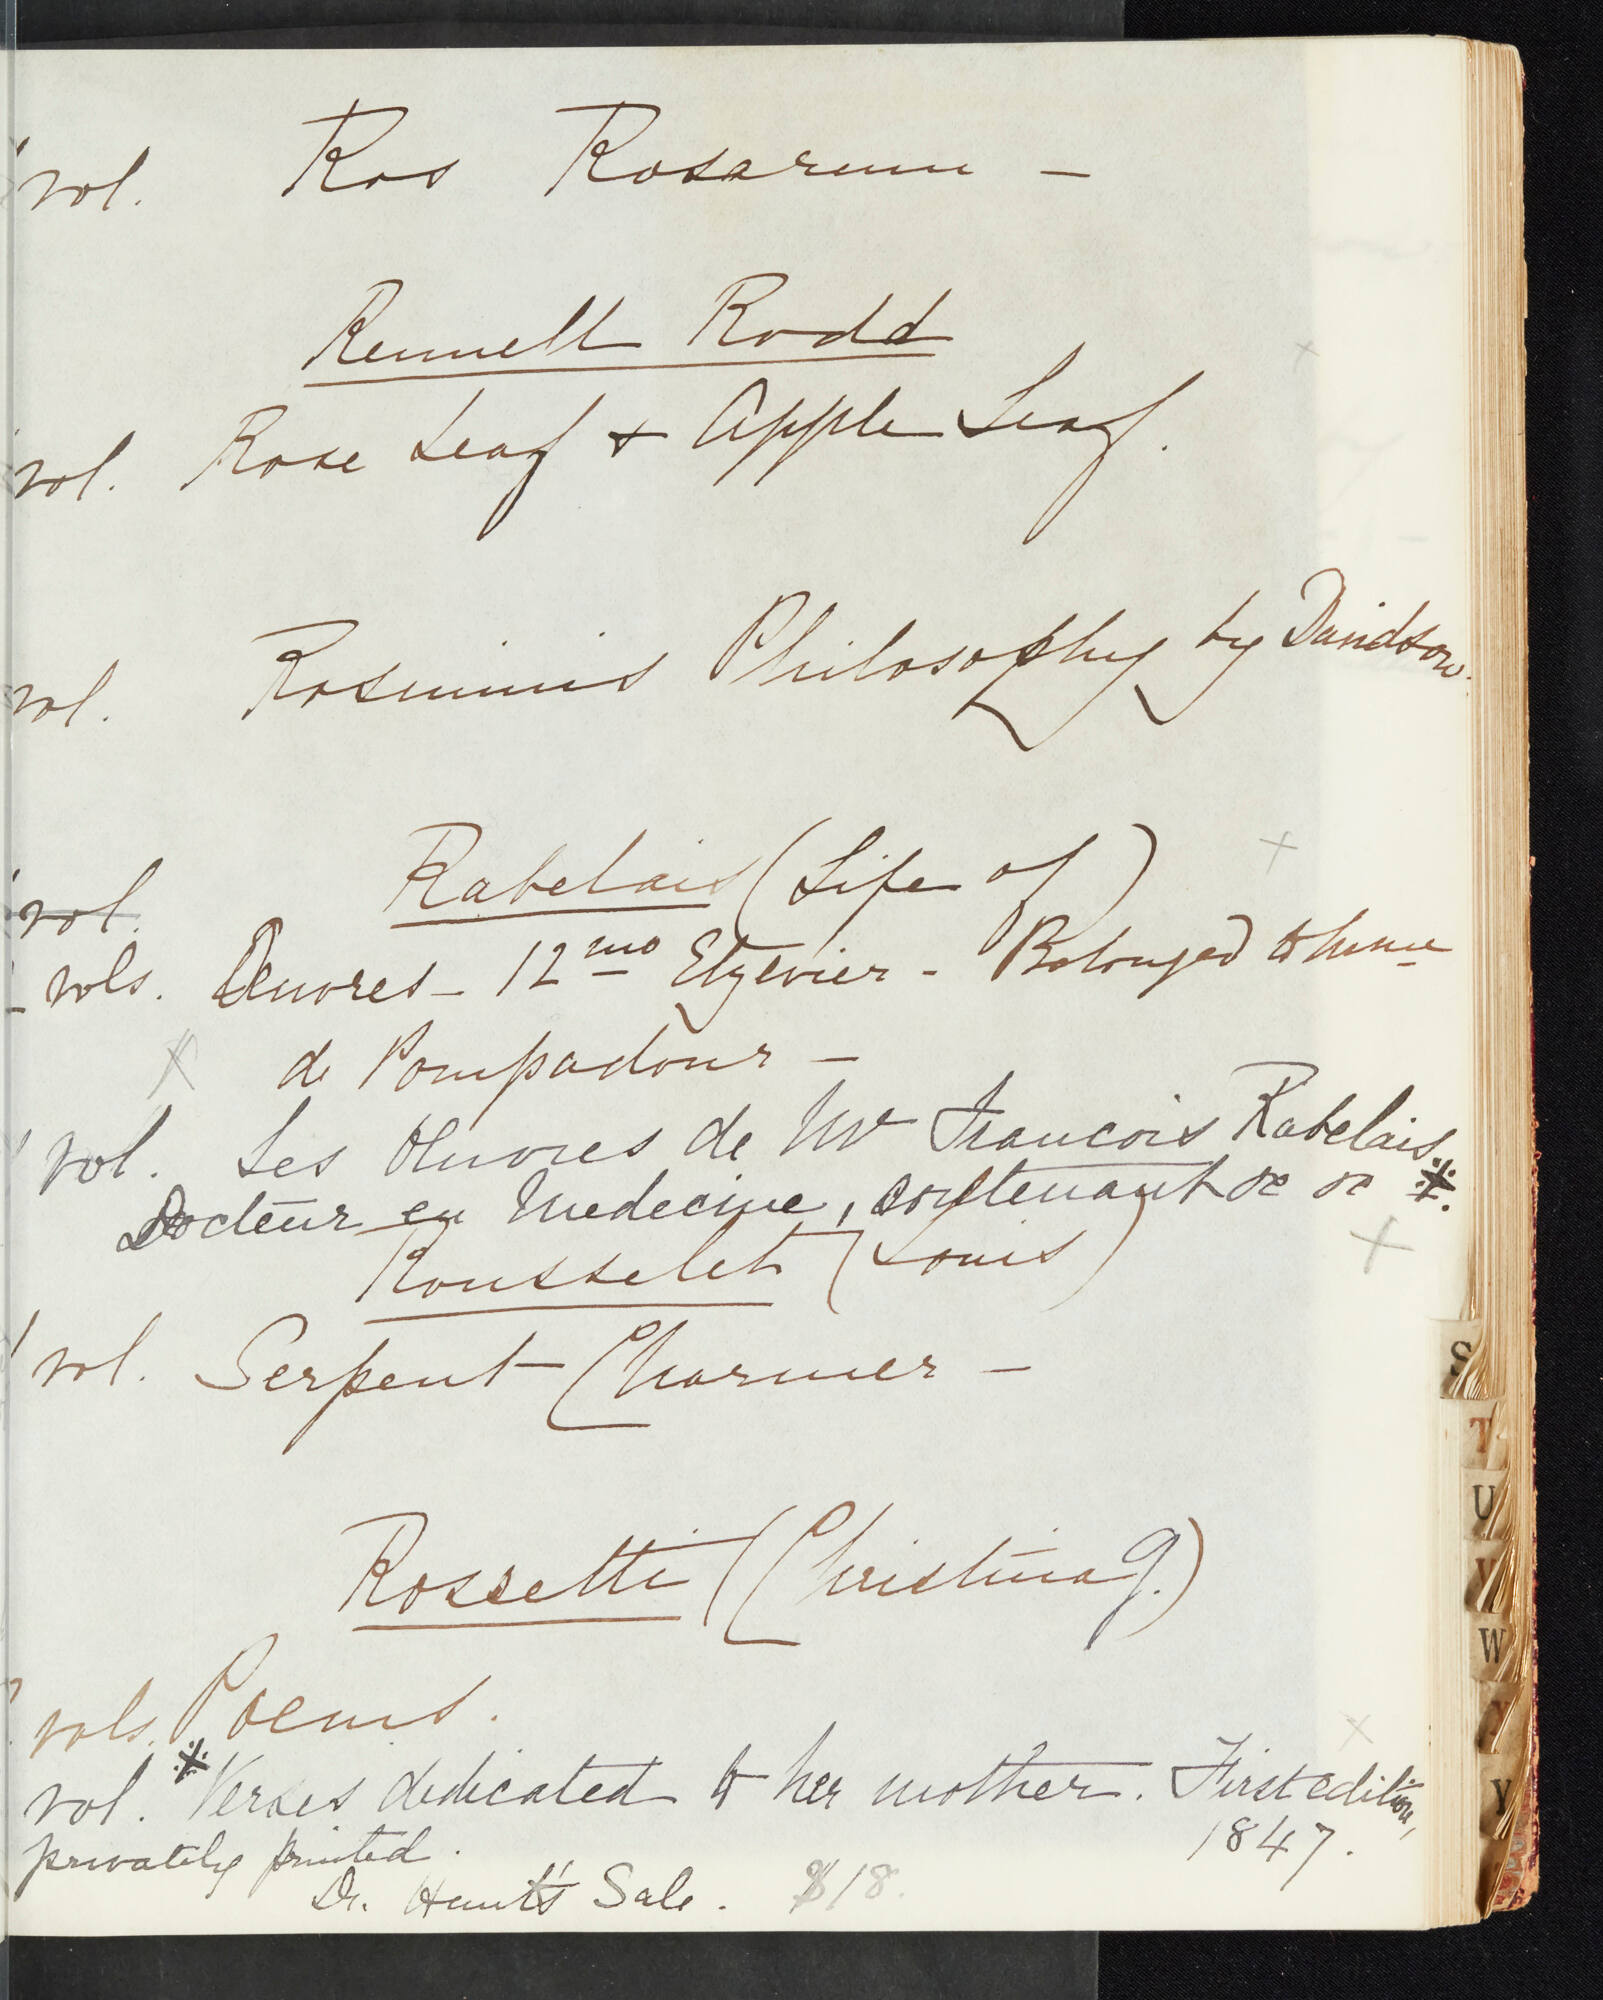 1 vol. Ros Rosarum —
Rennell Rodd
vol. Rose Leaf + Apple Leaf.
vol. Rosminis Philosophy by Davidson.
1 vol. Rabelais (Life of)
vols. Oeuvres — 12mo Elzevier - Belonged to Mme
de Pompadour —
1 vol. Les Oeuvres de Mr Francois Rabelais
Docteur en Medecine, contenant &c &c ※.
Rousselet (Louis)
1 vol. Serpent Charmer —
Rossetti (Christina G.)
vols. Poems.
vol. ※ Verses dedicated to her mother. First edition,
privately printed. 1847.
Dr. Hunt's Sale. $18.
S
T
U
V
W
Y